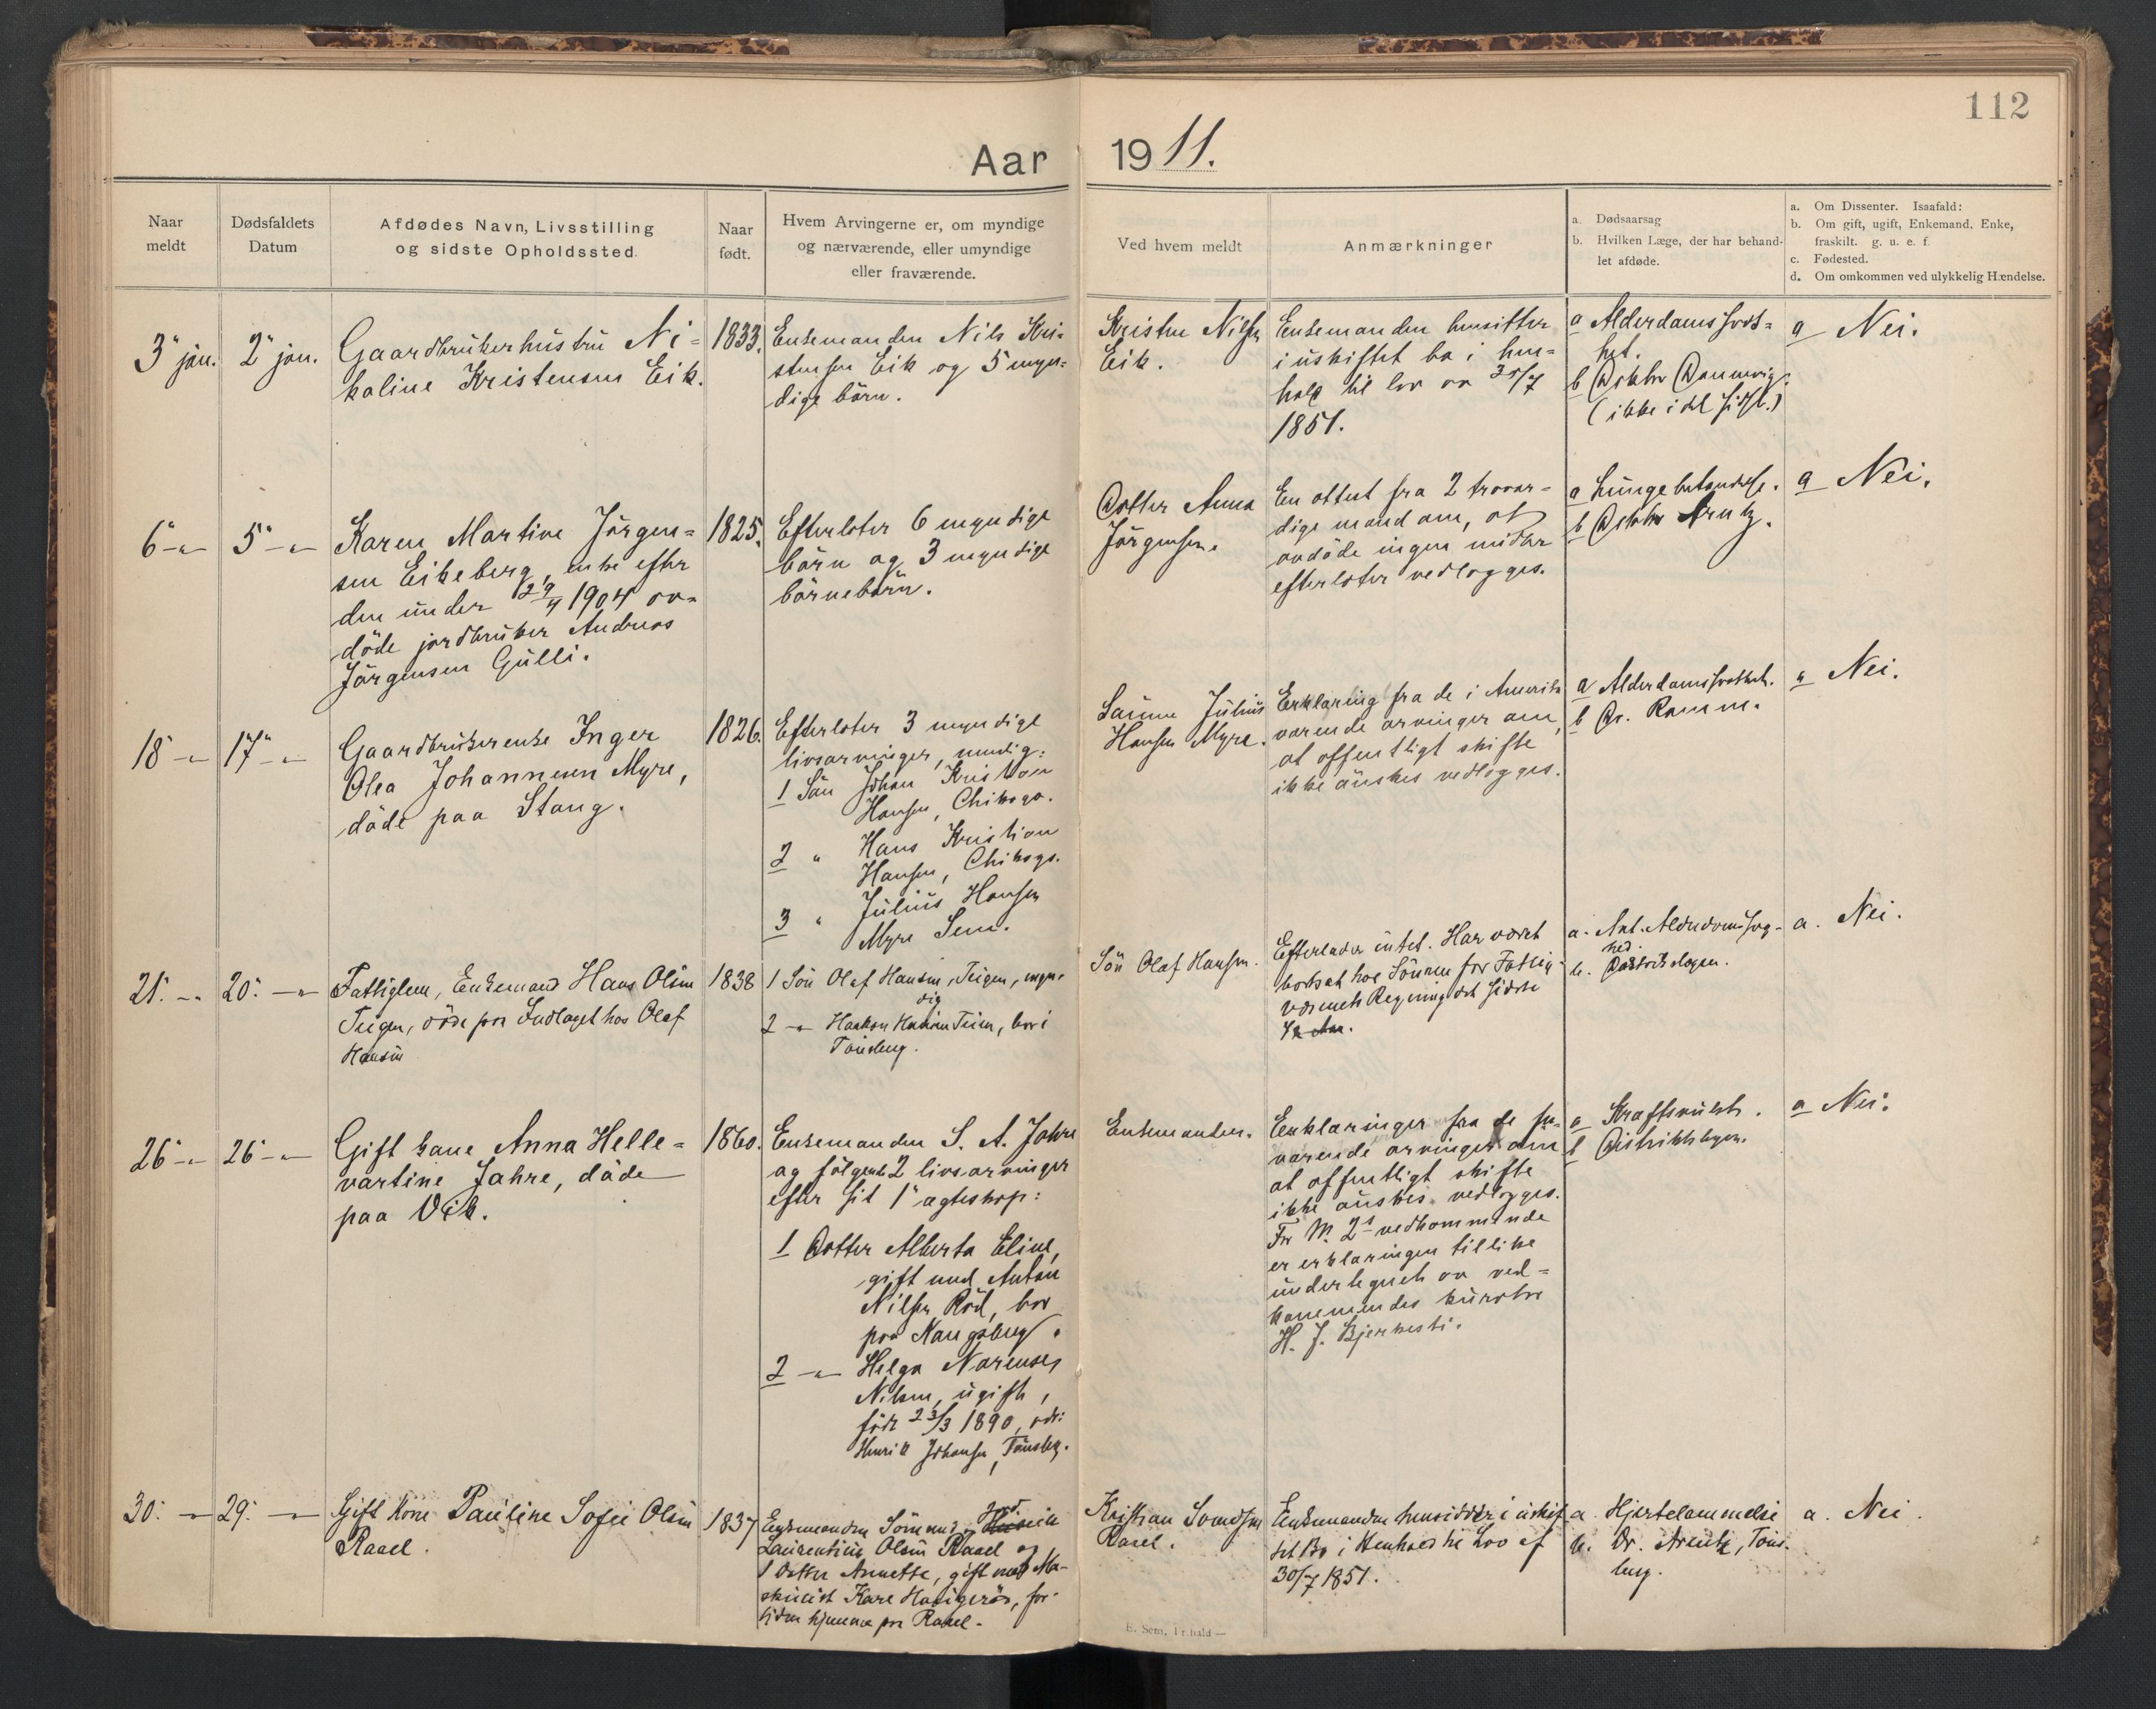 112
Aar 1911.
Naar meldt
Dødsfaldets Datum
Afdødes Navn, Livsstilling og sidste Opholdssted.
Naar født.
Hvem Arvingerne er, om myndige og nærværende, eller umyndige eller fraværende.
Ved hvem meldt
Anmærkninger
a. Dødsaarsag
b. Hvilken Læge, der har behandlet afdøde.
a. Om Dissenter. Isaafald:
b. Om gift, ugift, Enkemand, Enke, fraskilt. g. u. e. f.
c. Fødested.
d. Om omkommen ved ulykkelig Hændelse.
3" jan.
2" jan.
Gaardbrukerhustru Ni=
koline Kristensen Eik.
1833.
Enkemanden Nils Kri-
stensen Eik og 5 myn-
dige börn.
Kristen Nilsen
Eik.
Enkemanden hensitter
i uskiftet bo i hen=
hold til lov av 30/7
1851.
a Alderdomssvak=
het.
b Doktor
(ikke i det sidste.)
a Nei.
6 -"-
5 -"-
Karen Martine Jörgen=
sen Eikeberg, enke efter
den under 29/4 1904 av=
döde jordbruker Andreas
Jörgensen Gulli.
1825.
Efterlater 6 myndige
börn og 3 myndige
börnebörn.
Datter Anna
Jörgensen.
En attest fra 2 trovær-
dige mænd om, at
avdöde ingen midler
efterlater vedlægges.
a Lungebetændelse.
b Doktor Arentz.
a Nei.
18 -"-
17 -"-
Gaardbrukerenke Inger
Olea Johannesen Myre,
döde paa Stang.
1826.
Efterlater 3 myndige
livsarvinger, nemlig:
1 Sön Johan Kristian
Hansen, Chikago.
2 " Hans Kristian
Hansen, Chikago.
3 " Julius Hansen
Myre Sem.
Sönnen Julius
Hansen Myre.
Erklæring fra de i Amerika
værende arvinger om,
at offentligt skifte
ikke önskes vedlægges.
a Alderdomssvakhet.
b Dr. Ramm.
a Nei.
21. -"-
20. -"-
Fattiglem, Enkemand Hans Olsen
Teigen, döde paa Indlaget hos Olaf
Hansen
1838
1 Sön Olaf Hansen, Teigen, myn-
dig
2 -"- Haakon Hansen Teien, bor i
Tönsberg.
Sön Olaf Hansen.
Efterlader intet. Har været
bortsat hos Sönnen for Fattig-
væsenets Regning det sidste
Aar.
a. Ant. Alderdomssvag-
hed.
b. Distriktslægen.
a. Nei.
26 -"-
26 -"-
Gift kone Anna Helle=
vartine Jahre, döde
paa Vik.
1860.
Enkemanden S. A. Jahre
og fölgende 2 livsarvinger
efter sit 1" ægteskap:
1 Datter Alberta Eline,
gift med Anton
Nilsen Röd, bor
paa Kongsberg.
2 -"- Helga
Nilsen, ugift,
född 23/3 1890, adr:
Henrik Johansen, Tönsbg.
Enkemanden.
Erklæringer fra de fra-
værende arvinger om
at offentligt skifte
ikke önskes vedlægges.
For No 2s vedkommende
er erklæringen tillike
undertegnet av ved=
kommendes kurator
H. J. Bjerkesti.
a Kræftsvulst.
b Distriktslægen.
a Nei.
30. -"-
29. -"-
Gift Kone Pauline Sofie Olsen
Raael.
1837
Enkemanden
Laurentius Olsen Raael og
1 Datter Annette, gift med Ma-
skinist Kare
tiden hjemme paa Raael.
Kristian
Raael.
Enkemanden hensidder i uskif-
tet Bo i Henhold til Lov af
30/7 1851.
a. Hjertelammelse
b. Dr. Arentz, Töns-
berg.
a. Nei.
E. Sem, Fr.hald —